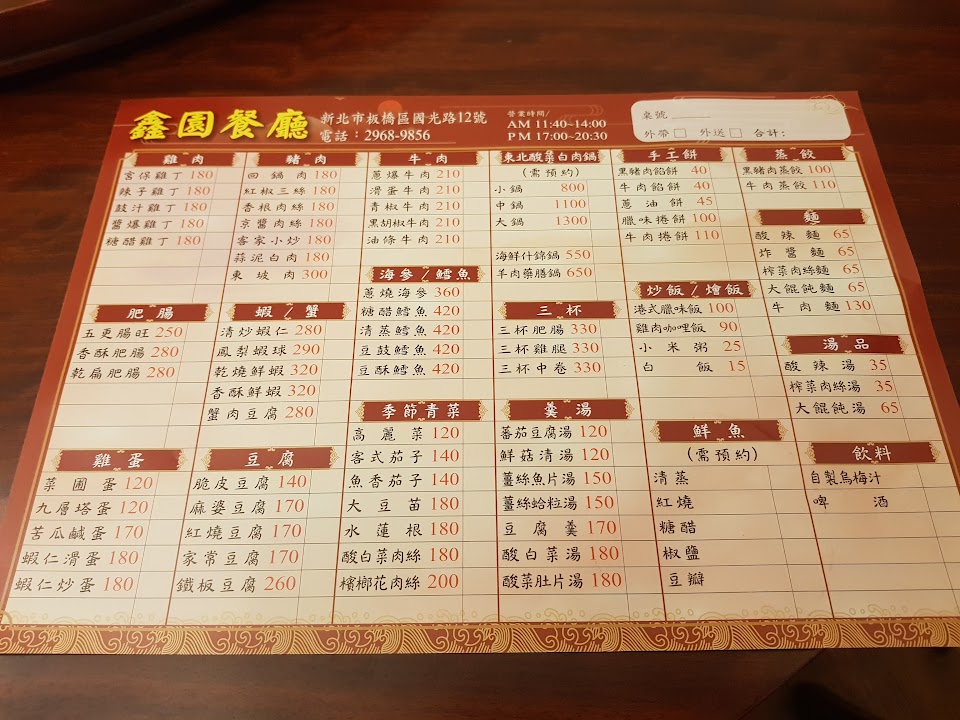 鑫園餐廳
新北市板橋區國光路12號
電話：2968-9856
營業時間/
AM 11:40~14:00
PM 17:00~20:30
桌號
外帶 外送 合計：
雞肉
宮保雞丁 180
辣子雞丁 180
鼓汁雞丁 180
醬爆雞丁 180
糖醋雞丁 180
肥腸
五更腸旺 250
香酥肥腸 280
乾扁肥腸 280
雞蛋
菜圃蛋 120
九層塔蛋 120
苦瓜鹹蛋 170
蝦仁滑蛋 180
蝦仁炒蛋 180
豬肉
回鍋肉 180
紅椒三絲 180
香根肉絲 180
京醬肉絲 180
客家小炒 180
蒜泥白肉 180
東坡肉 300
蝦/蟹
清炒蝦仁 280
鳳梨蝦球 290
乾燒鮮蝦 320
香酥鮮蝦 320
蟹肉豆腐 280
豆腐
脆皮豆腐 140
麻婆豆腐 170
紅燒豆腐 170
家常豆腐 170
鐵板豆腐 260
牛肉
蔥爆牛肉 210
滑蛋牛肉 210
青椒牛肉 210
黑胡椒牛肉 210
油條牛肉 210
海參/鱈魚
蔥燒海參 360
糖醋鱈魚 420
清蒸鱈魚 420
豆鼓鱈魚 420
豆酥鱈魚 420
季節青菜
高麗菜 120
客式茄子 140
魚香茄子 140
大豆苗 180
水蓮根 180
酸白菜肉絲 180
檳榔花肉絲 200
東北酸菜白肉鍋
(需預約)
小鍋 800
中鍋 1100
大鍋 1300
海鮮什錦鍋 550
羊肉藥膳鍋 650
三杯
三杯肥腸 330
三杯雞腿 330
三杯中卷 330
羹湯
蕃茄豆腐湯 120
鮮菇清湯 120
薑絲魚片湯 150
薑絲蛤粒湯 150
豆腐羹 170
酸白菜湯 180
酸菜肚片湯 180
手工餅
黑豬肉餡餅 40
牛肉餡餅 40
蔥油餅 45
臘味捲餅 100
牛肉捲餅 110
炒飯/燴飯
港式臘味飯 100
雞肉咖哩飯 90
小米粥 25
白飯 15
鮮魚
(需預約)
清蒸
紅燒
糖醋
椒鹽
豆瓣
蒸餃
黑豬肉蒸餃 100
牛肉蒸餃 110
麵
酸辣麵 65
炸醬麵 65
榨菜肉絲麵 65
大餛飩麵 65
牛肉麵 130
湯品
酸辣湯 35
榨菜肉絲湯 35
大餛飩湯 65
飲料
自製烏梅汁
啤酒